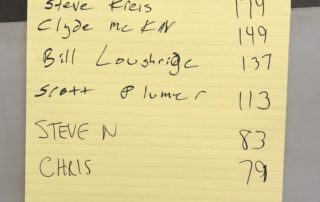 Steve Kreis 179
Clyde McKAY 149
Bill Loughrige 137
Scott Plumer 113
STEVE N 83
CHRIS 79